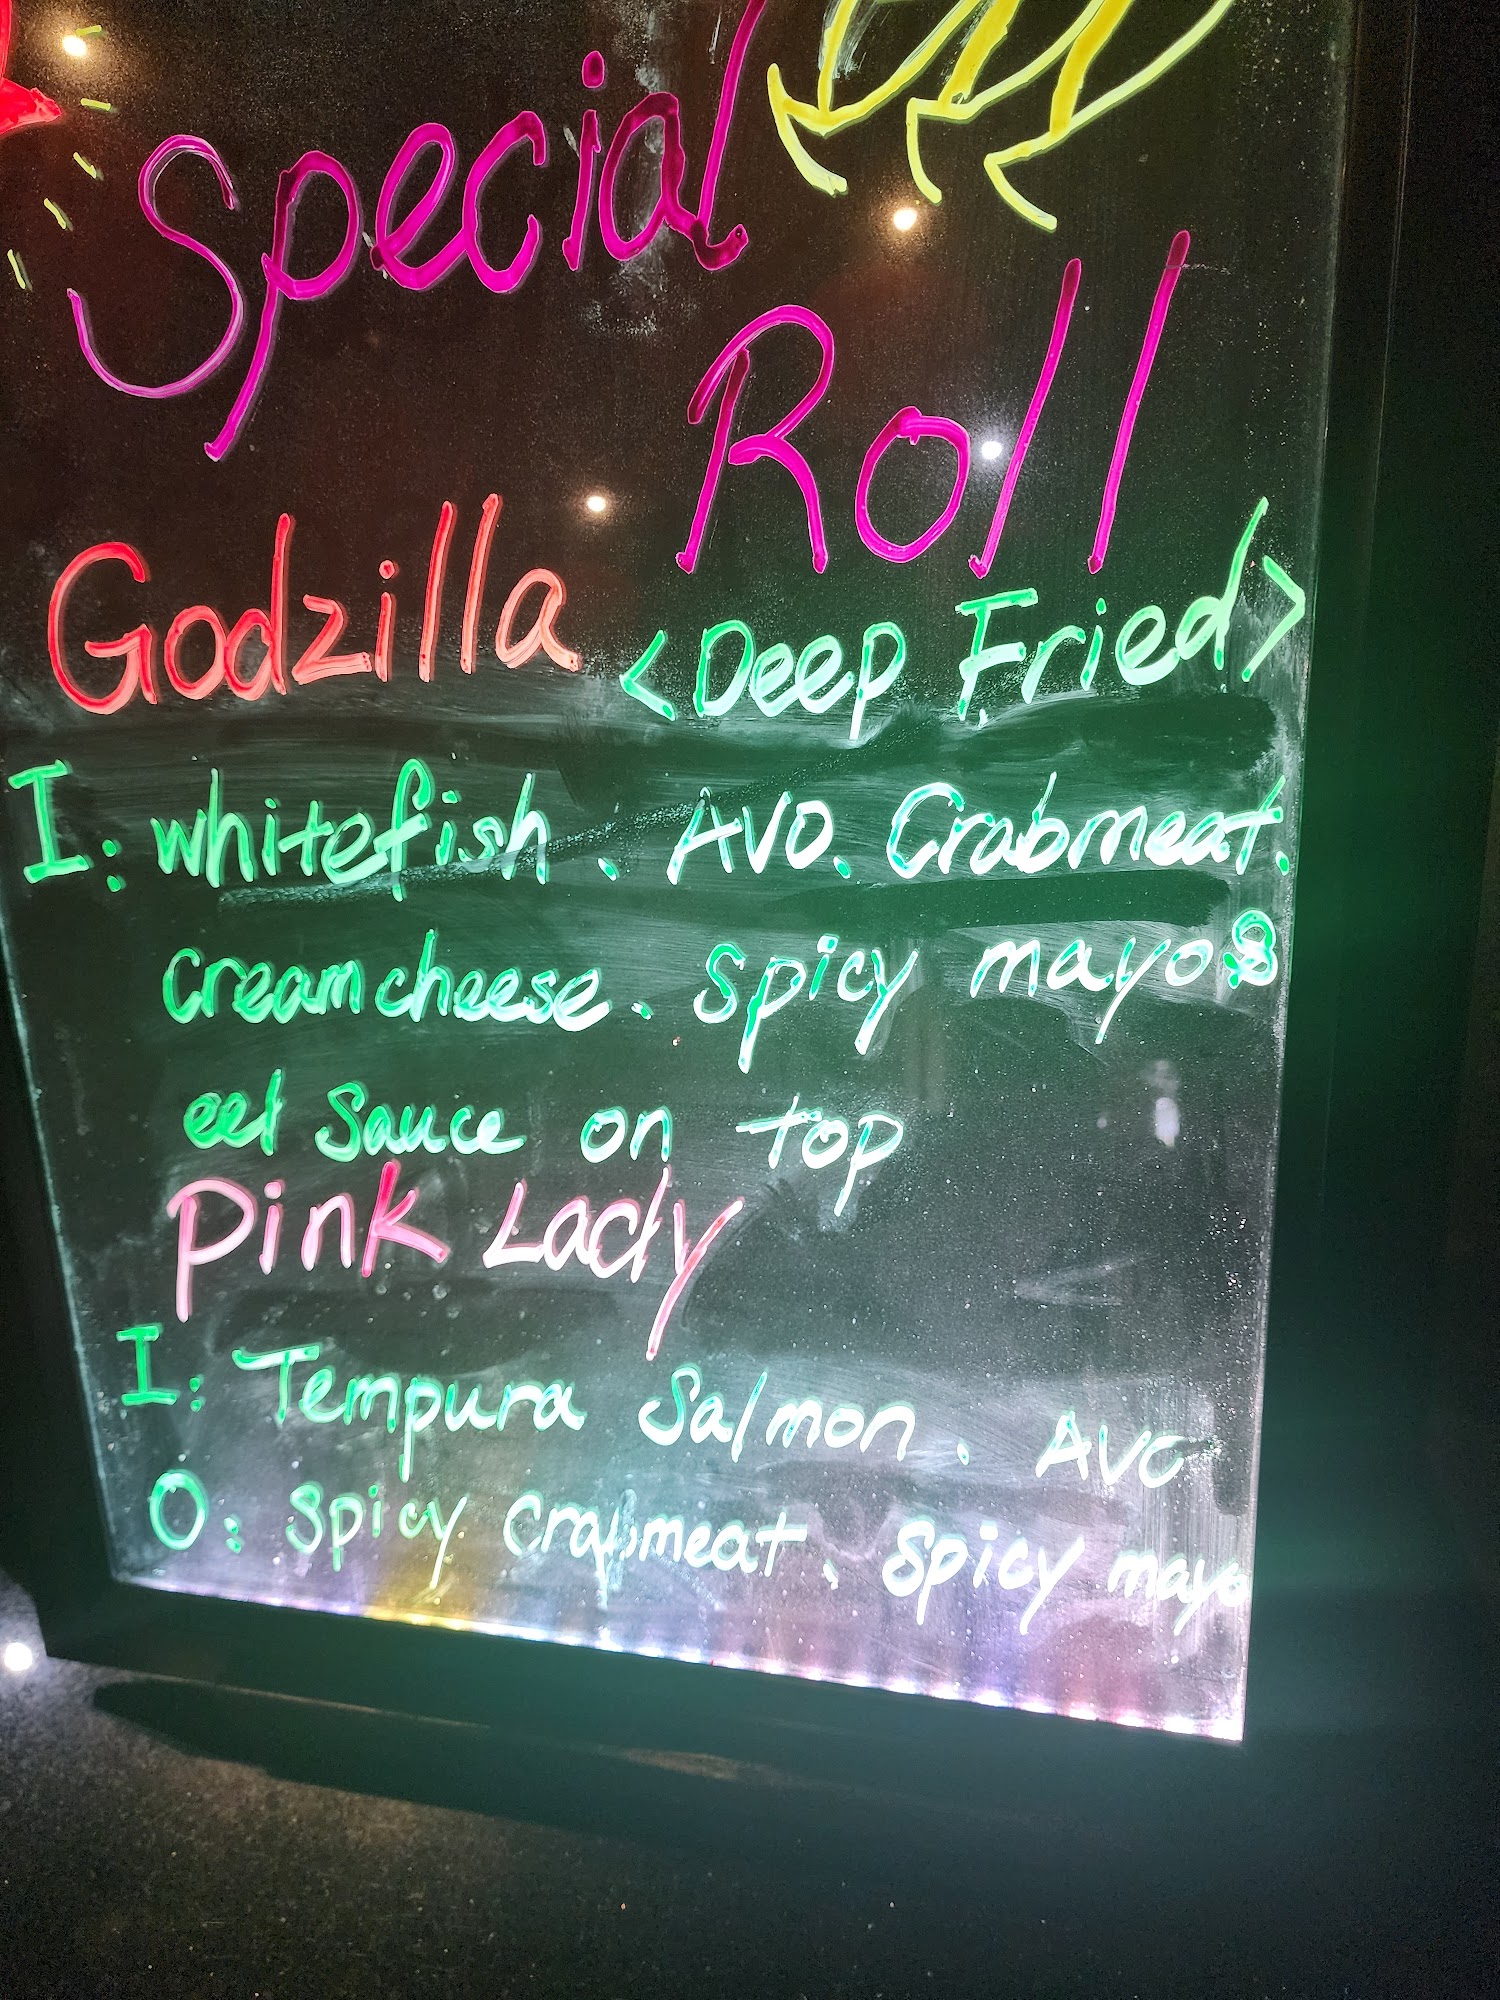 Special
Roll
Godzilla <Deep Fried>
I: whitefish、Avo、Crabmeat、
Creamcheese、Spicy mayo&
eel Sauce on top
Pink Lady
I: Tempura Salmon、Avo
O: Spicy Crabmeat、Spicy mayo